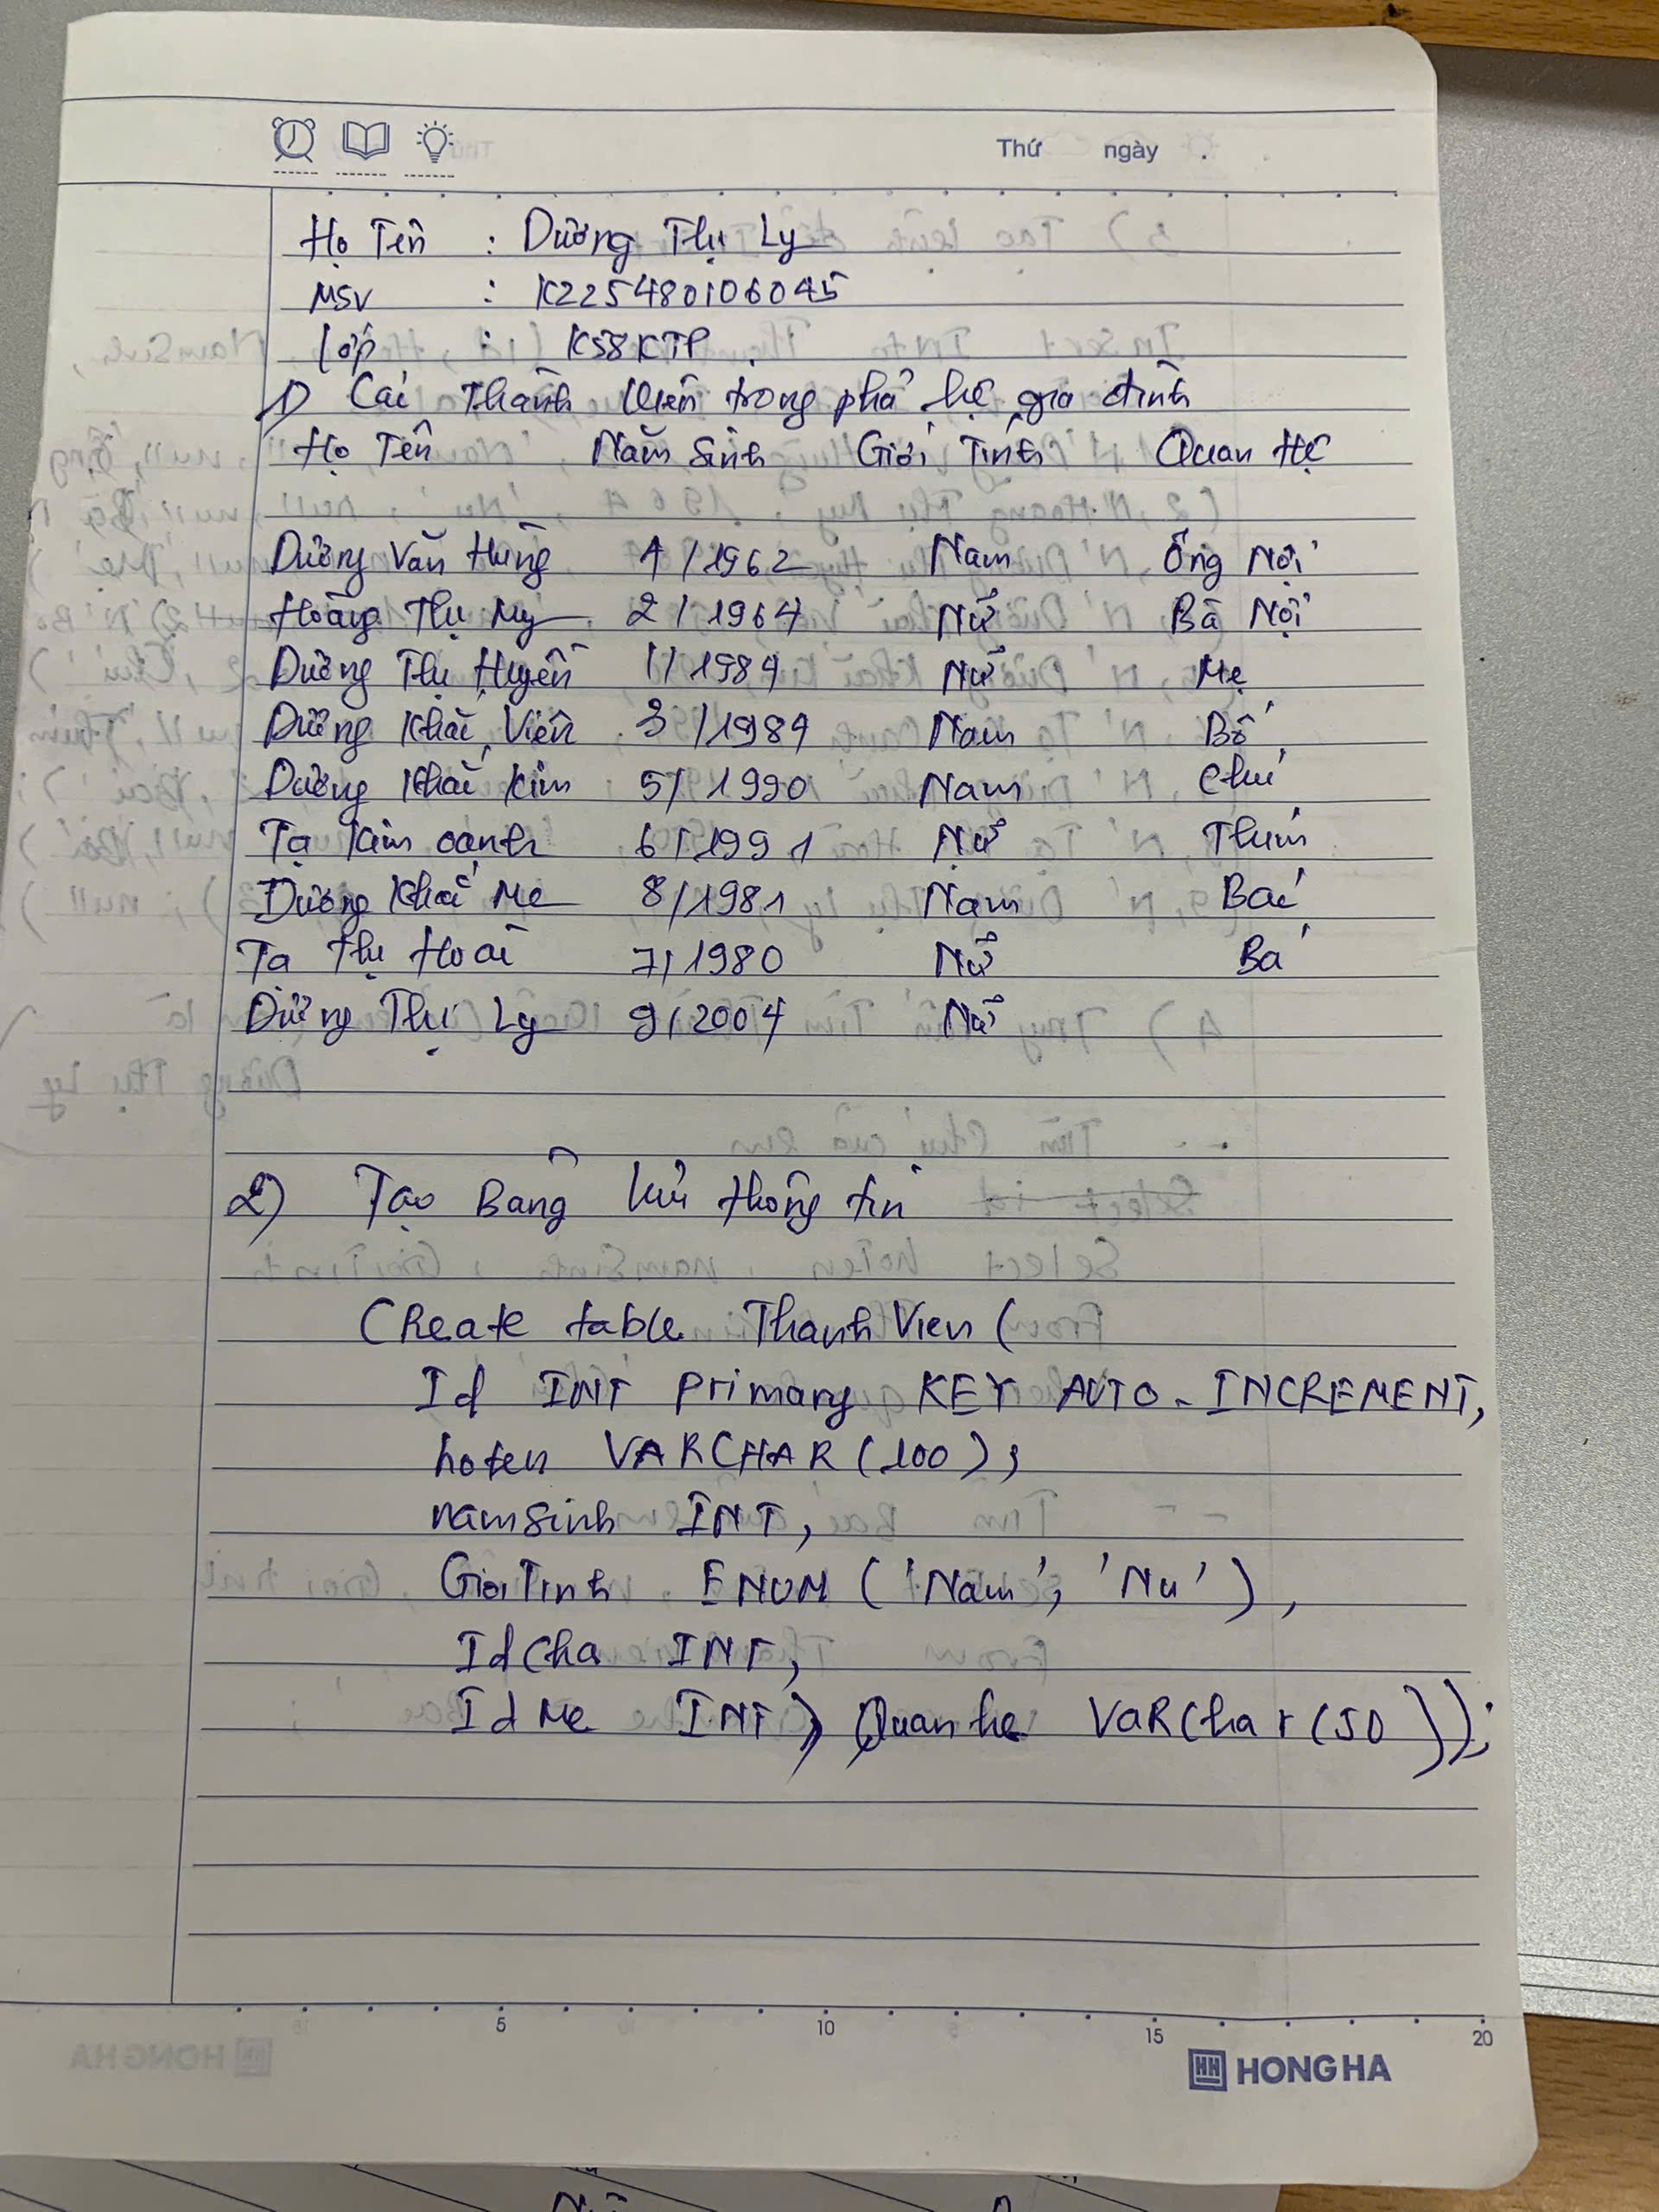 Thứ ngày .
Họ Tên : Dương Thị Ly
MSV : K225480106045
Lớp : K58KTP
1) Các Thành Viên trong phả hệ gia đình
Họ Tên Năm Sinh Giới Tính Quan Hệ
Dương Văn Hùng 1/1962 Nam Ông Nội
Hoàng Thị My 2/1964 Nữ Bà Nội
Dương Thị Huyền 11/1984 Nữ Mẹ
Dương Khắc Viên 3/1984 Nam Bố
Dương Khắc Kim 5/1990 Nam Chú
Tạ Kim oanh 6/1991 Nữ Thím
Dương Khắc Me 8/1981 Nam Bác
Tạ Thị Hoài 7/1980 Nữ Bá
Dương Thị Ly 9/2004 Nữ
2) Tạo Bảng lưu thông tin
Create table ThanhVien (
Id INT primary KEY AUTO_INCREMENT,
hoten VARCHAR(100),
namsinh INT,
GioiTinh ENUM ('Nam', 'Nu'),
IdCha INT,
IdMe INT, Quanhe VaRChar(50));
5 10 15 20
HH HONG HA